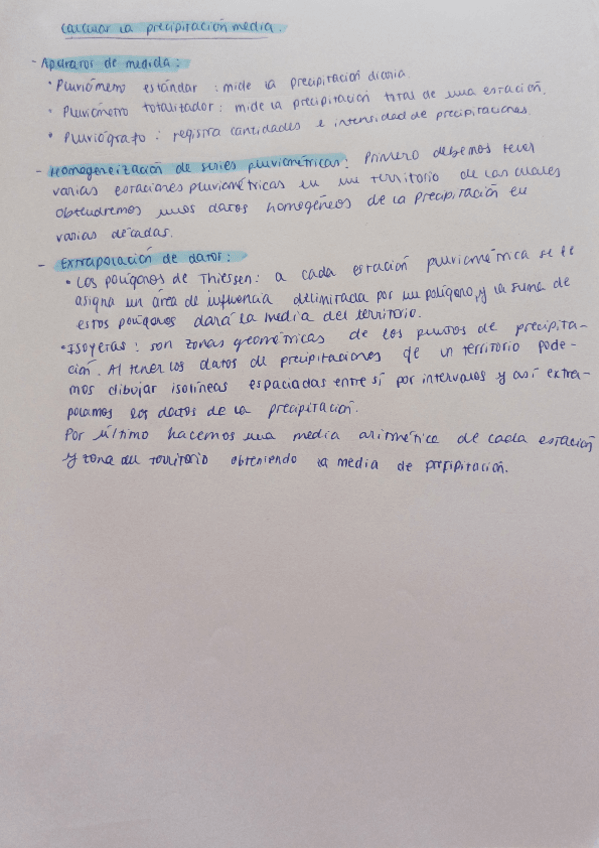 Calcular la precipitación media.
- Aparatos de medida:
• Pluviómetro estándar: mide la precipitación diaria.
• Pluviómetro totalizador: mide la precipitación total de una estación.
• Pluviógrafo: registra cantidades e intensidad de precipitaciones.
- Homogeneización de series pluviométricas: Primero debemos tener
varias estaciones pluviométricas en un territorio de las cuales
obtendremos unos datos homogéneos de la precipitación en
varias décadas.
- Extrapolación de datos:
• Los polígonos de Thiessen: a cada estación pluviométrica se le
asigna un área de influencia delimitada por un polígono, y la suma de
estos polígonos dará la media del territorio.
• Isoyetas: son zonas geométricas de los puntos de precipita-
ción. Al tener los datos de precipitaciones de un territorio pode-
mos dibujar isolíneas espaciadas entre sí por intervalos y así extra-
polamos los datos de la precipitación.
Por último hacemos una media aritmética de cada estación
y zona del territorio obteniendo la media de precipitación.